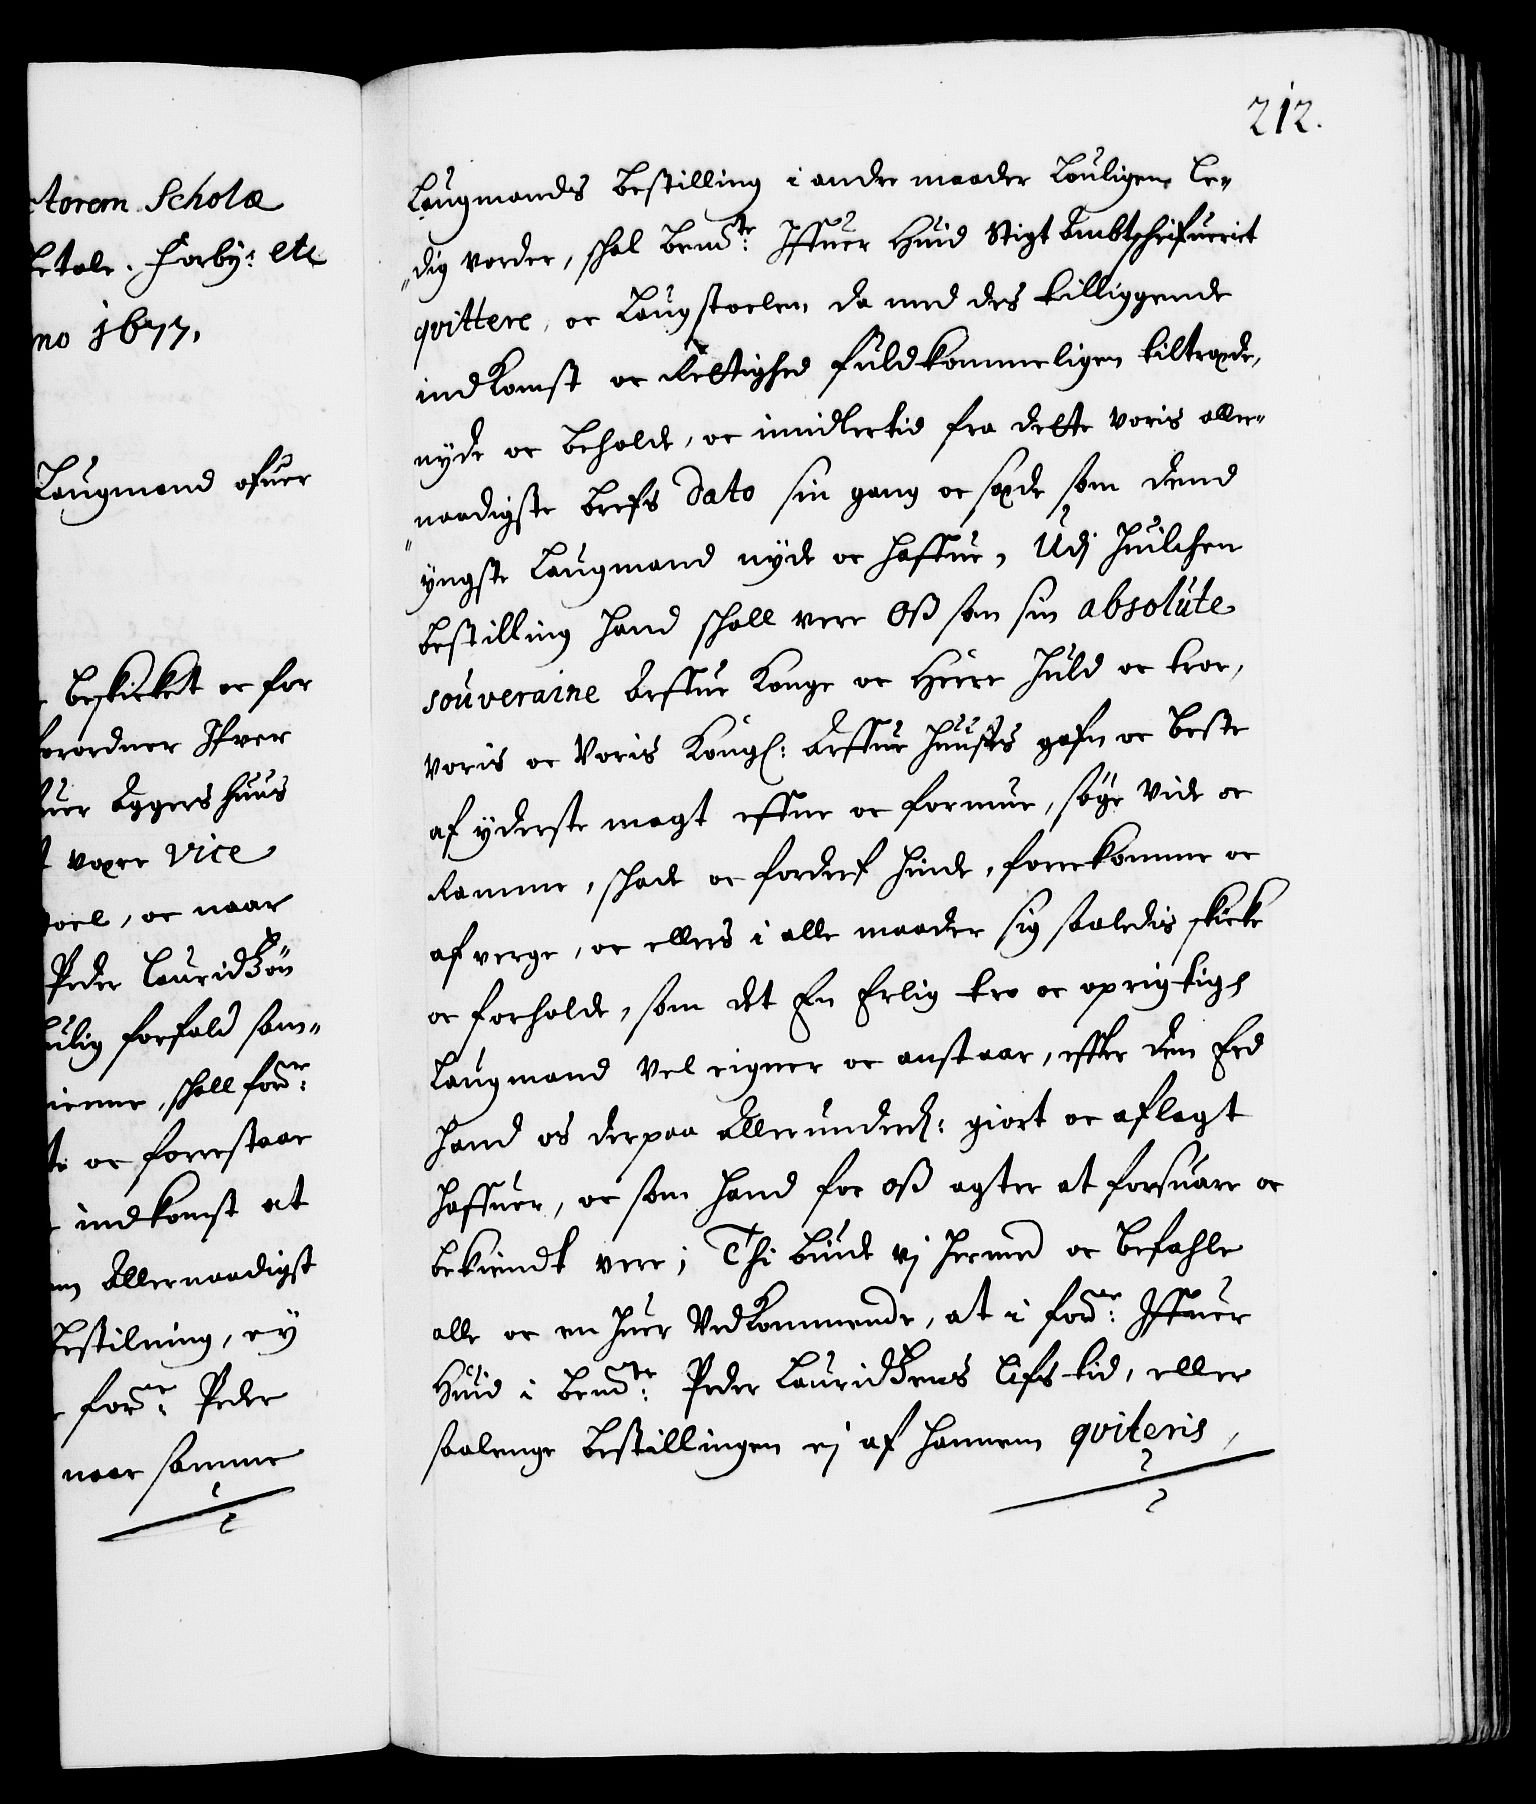 ctorem Scholæ
betale. Forby: etc
no 1677.
Laugmand ofuer
Beskicket oc for
forordner Ifver
fuer Aggershuus
t være vice
oel, oc naar
Peder Lauridtzøn
ulig forfald som-
ienne, skall fornr:
te oc forrestaar
indkomst at
em Allernaadigst
Bestilning, ey
fornr: Peder
naar samme
212.
Laugmands Bestilling i andre maader Louligen le-
dig vorder, skal bemte: Iffuer Huid Stigt Ambtschrifueriet
qvittere, oc Laugstoelen, da med des tilliggende
indkomst oc Rettighed fuldkommeligen tiltræde,
nyde oc beholde, oc imidlertid fra dette voris aller-
naadigste brefs Dato sin gang oc sæde som dend
yngste Laugmand nyde oc haffue, Udj huilchen
bestilling hand skall vere Oss som sin absolute
souveraine Arffue Konge oc Herre huld oc troe,
voris oc Voris Kongl: Arffue huuses gafn oc beste
af yderste magt effne oc formue, søge vide oc
Ramme, skade oc forderf hinde, forrekomme oc
afverge, oc ellers i alle maader sig saaledis skicke
oc forholde, som det En Erlig tro oc oprigtig
Laugmand vel eigner oc anstaar, effter den Eed
hand os derpaa Allerunderd: giort oc aflagt
haffuer, oc som hand for oss agter at forsuare oc
bekiendt vere; Thi biude vj hermed oc befahle
alle oc en huer Vedkommende, at i fornr: Iffuer
Huid i bemte: Peder Lauridtzens lifs tid, eller
saalenge bestillingen ej af hannem qviteris,